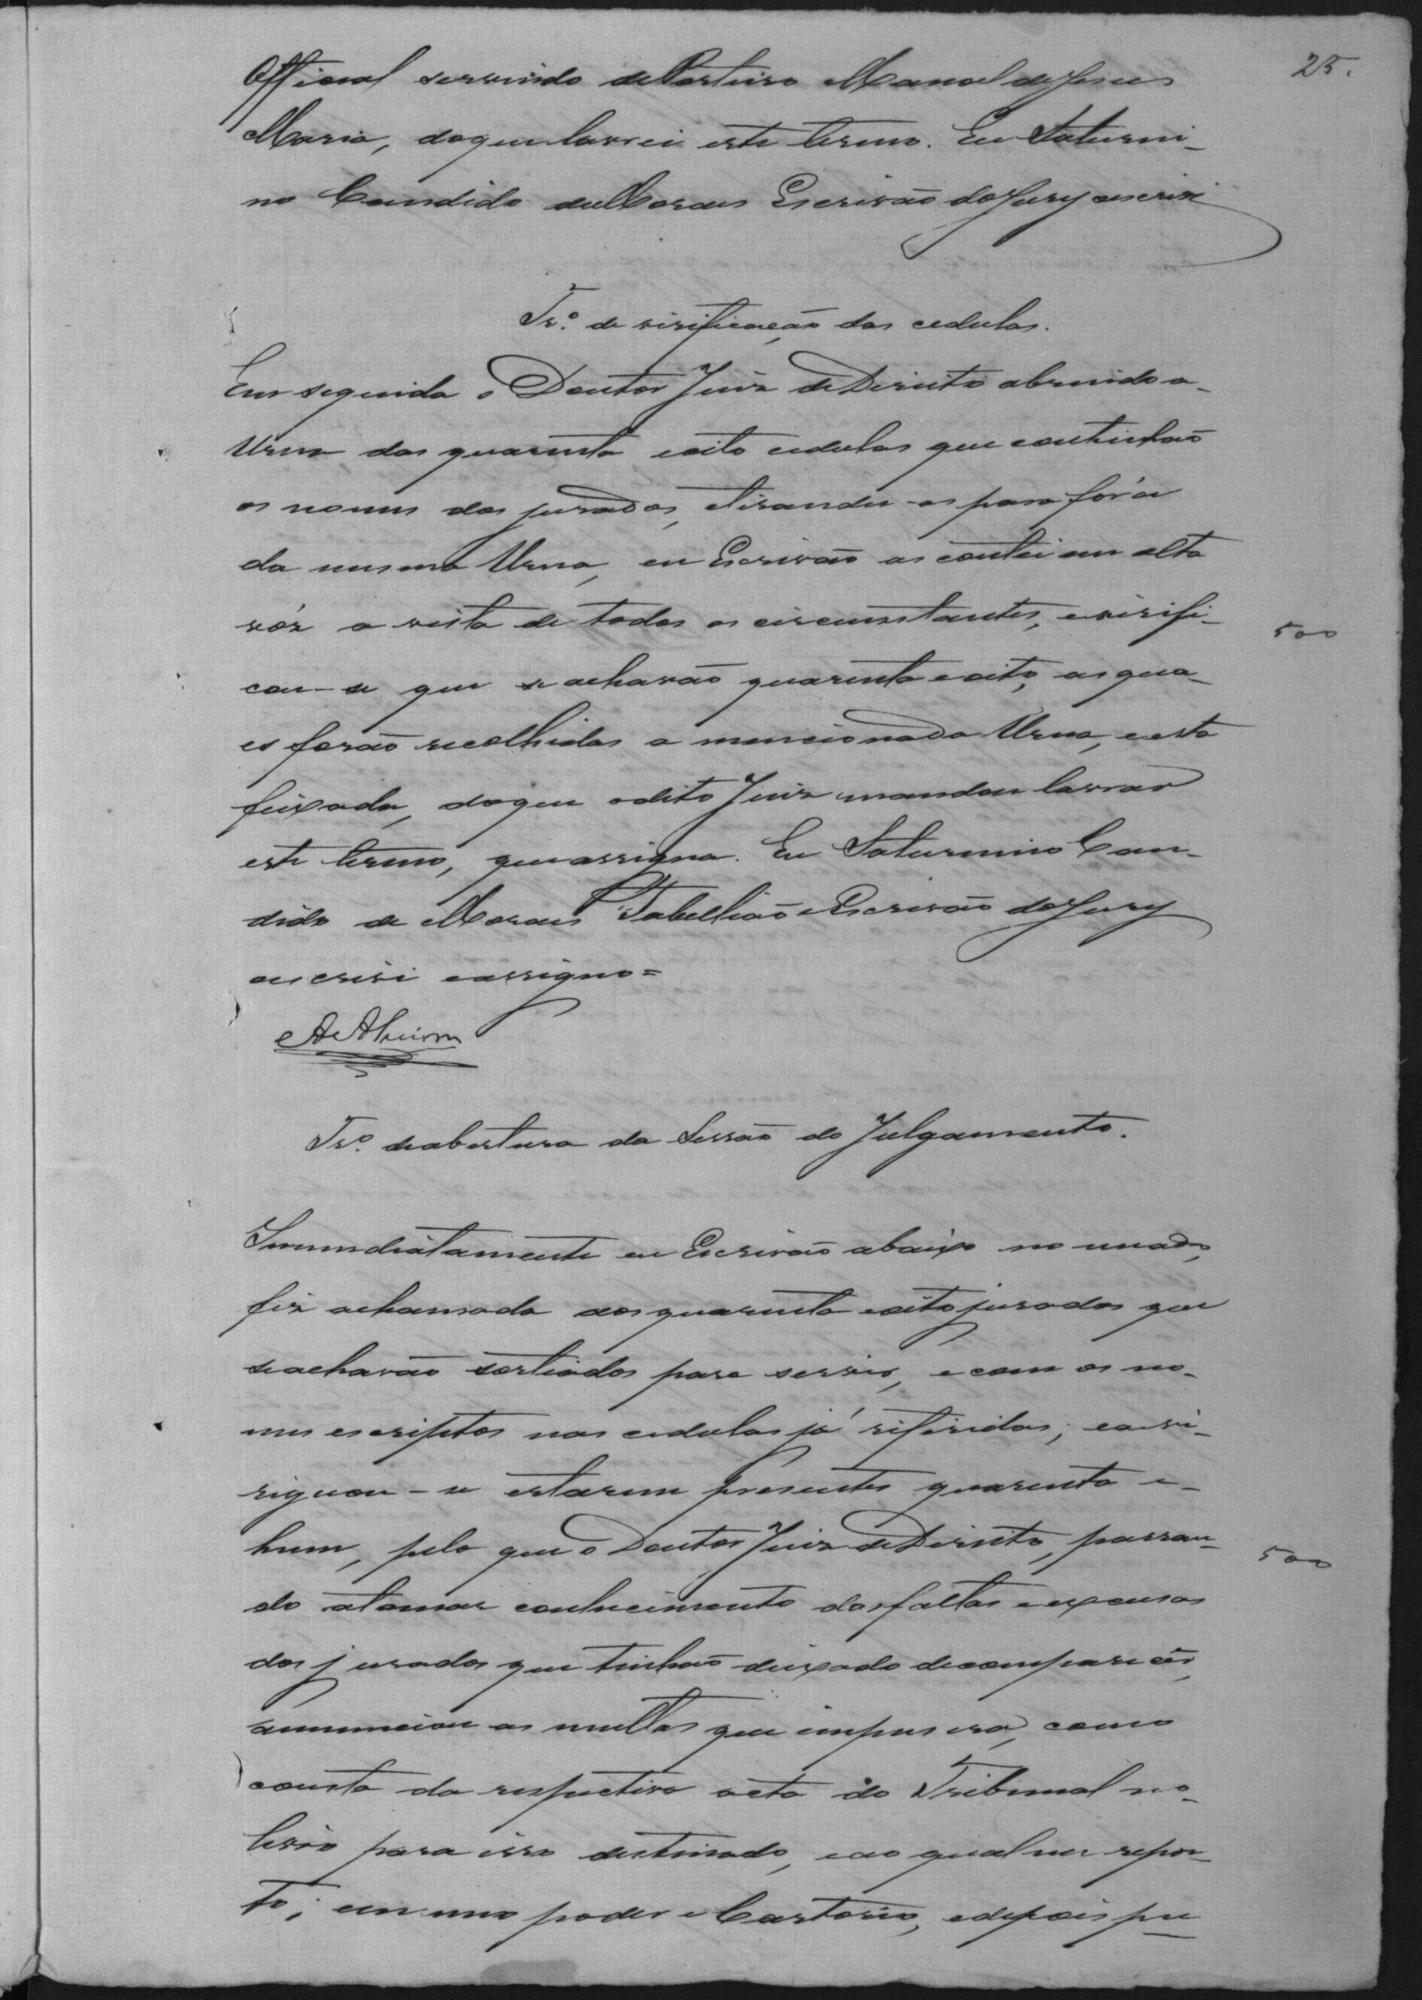 25.
Official servindo de Porteiro Manoel de Jesus
Maria, do que lavrei este termo. Eu Saturni-
no Candido de Moraes Escrivão do Jury escrivi
Tr.º de virificação das cedulas.
Em seguida o Doutor Juiz de Direito abrindo a-
Urna das quarenta eoito cedulas que continhão
os nomes dos jurados, etirando-as para fóra
da mesma Urna, eu Escrivão as contei em alta
vóz a vista de todos os circumstantes, evirifi-
cou-se que se achavão quarenta eoito, as qua-
es forão recolhidas a mencionada Urna, eesta
feixada, doque odito Juiz mandou lavrar
este termo, que assigna. Eu Saturnino Can-
dido de Moraes Tabellião eEscrivão do Jury
escrivi eassigno=
500
Tr.º de abertura da Sessão do Julgamento.
Immediatamente eu Escrivão abaixo no meado,
fiz achamada dos quarenta eoito jurados que
se achavão sortiados para servir, e com os no-
mes escriptos nas cedulas já referidas; eavi-
riguou-se estarem presentes quarenta e-
hum, pelo que o Doutor Juiz de Direito, passan-
500
do atomar conhecimento das faltas eexcusas
dos jurados que tinhão deixado decomparecer,
annunciou as multas que impusera, como
consta da respectiva acta do Tribunal no-
livro para isso destinado, eao qual me repor-
to; em meu poder eCartorio, edepois pu-